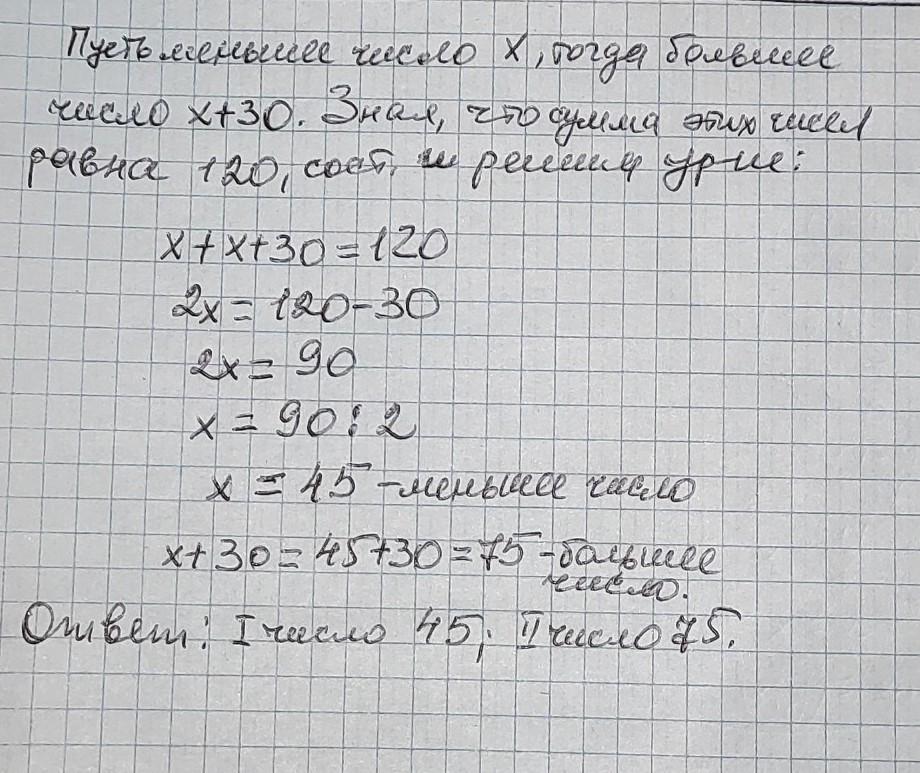 Пусть меньшее число x, тогда большее
число x+30. Зная, что сумма этих чисел
равна 120, сост. и решим ур-ие:
x+x+30=120
2x=120-30
2x=90
x=90:2
x=45-меньшее число
x+30=45+30=75-большее
число.
Ответ: I число 45; II число 75.